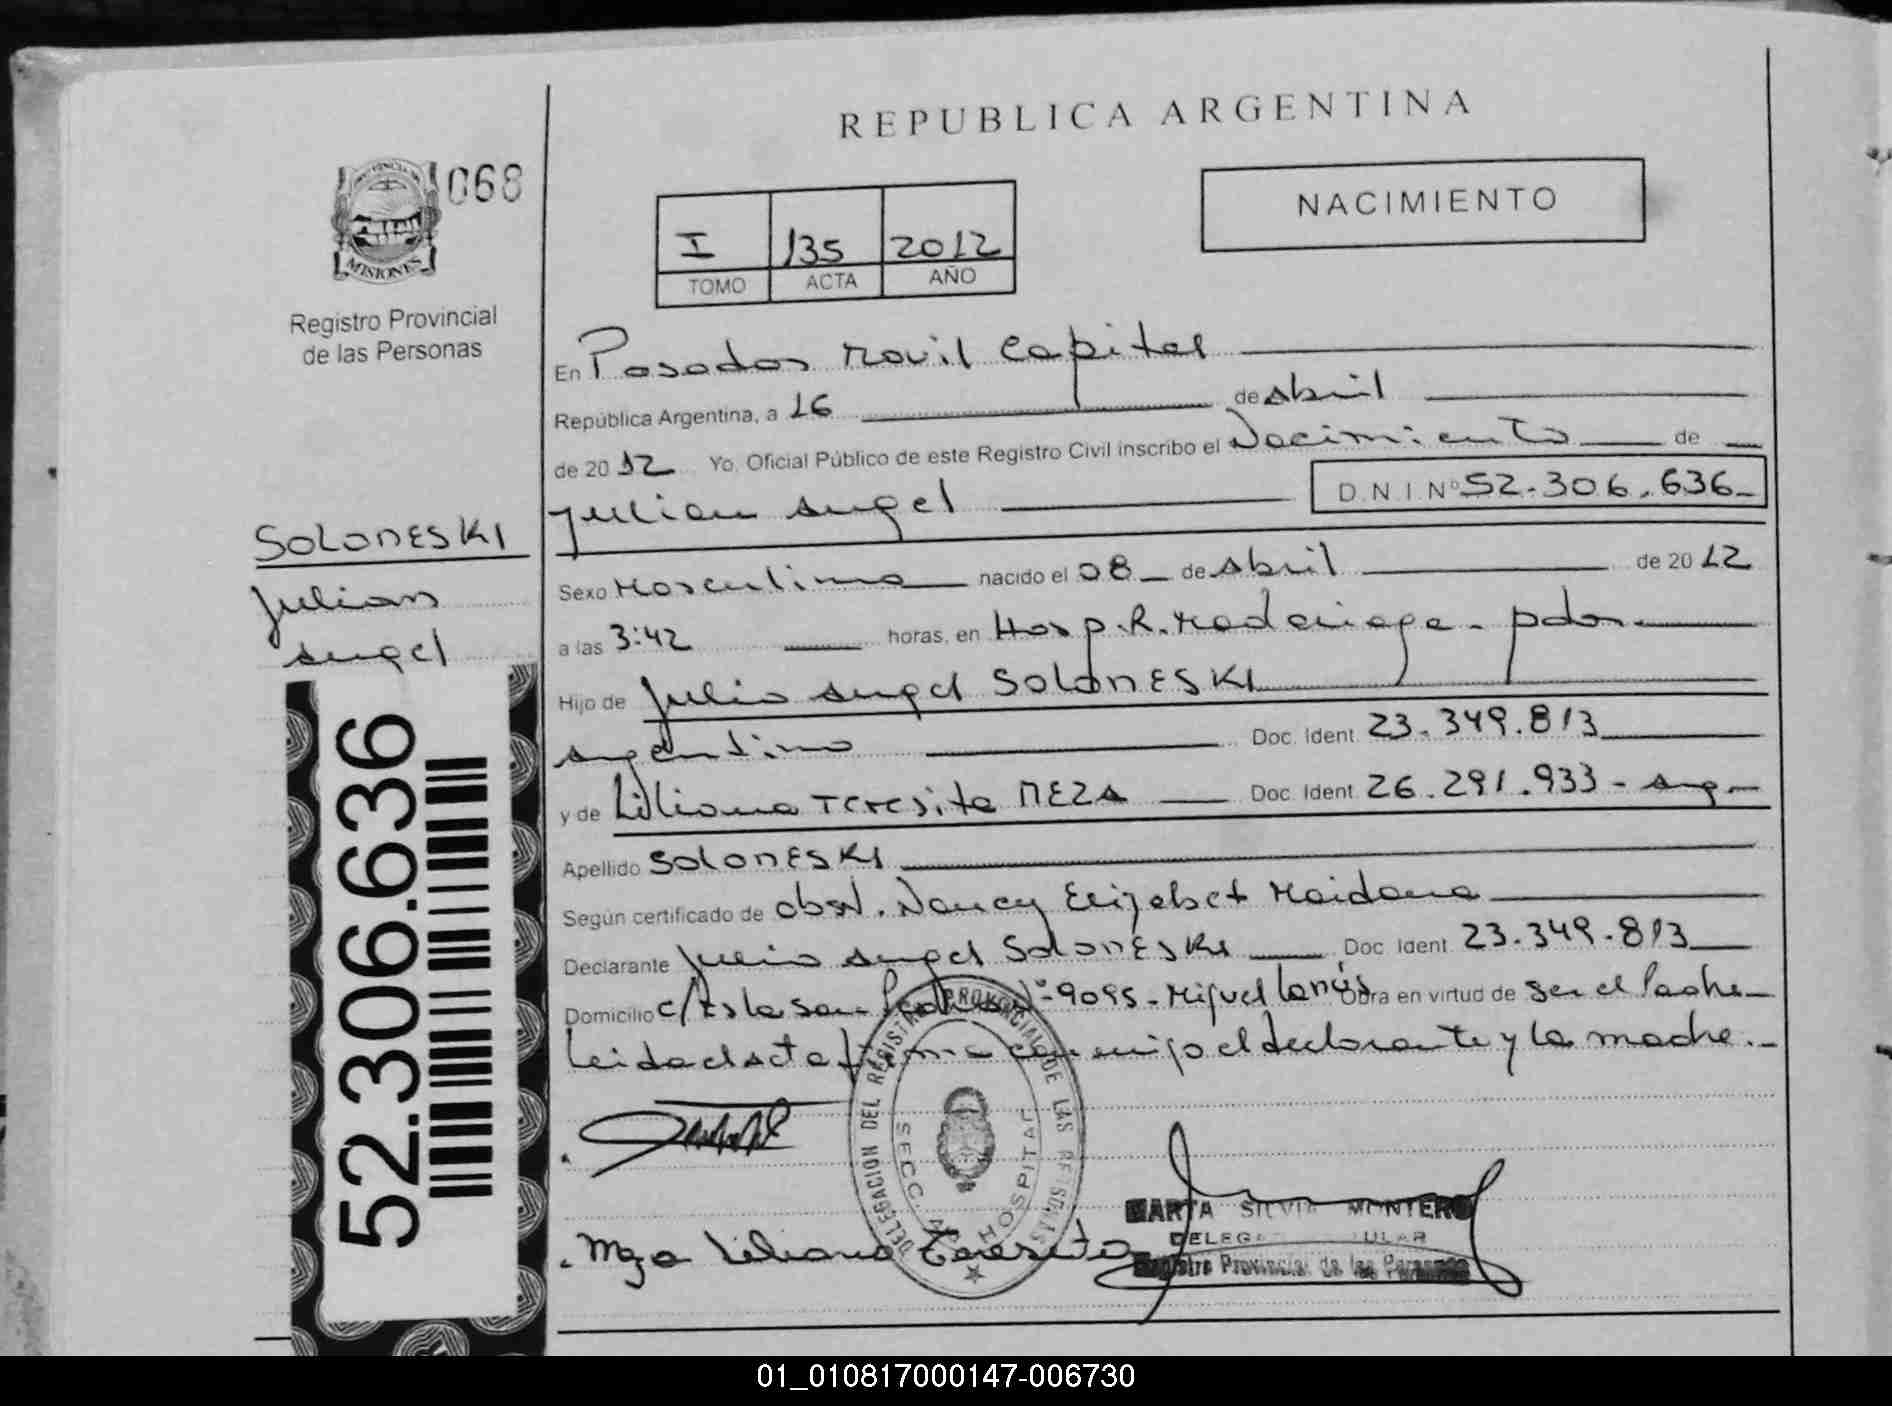 REPUBLICA ARGENTINA
068
MISIONES
Registro Provincial
de las Personas
NACIMIENTO
I 135 2012
TOMO ACTA AÑO
En Posadas Movil Capital
República Argentina, a 16 de Abril
de 2012 Yo, Oficial Público de este Registro Civil inscribo el Nacimiento de
Julian Angel D.N.I Nº 52.306.636
SOLONESKI
Julian
Angel
52.306.636
Sexo Masculino nacido el 08 de Abril de 2012
a las 3:42 horas, en Hosp. R. Madariaga - pdas
Hijo de Julio Angel SOLONESKI
argentino Doc. Ident. 23.349.813
y de Liliana Teresita MEZA Doc. Ident. 26.291.933 - arg.
Apellido SOLONESKI
Según certificado de obst. Nancy Elizabet Maidana
Declarante Julio Angel SOLONESKI Doc. Ident. 23.349.813
Domicilio c/ Isla San Nº 9095 - Miguel Lanús Obra en virtud de ser el Padre
Leida el acta firma conmigo el declarante y la madre.
DELEGACION DEL REGISTRO PROVINCIAL DE LAS PERSONAS
SECC. HOSPITAL
Meza Liliana Teresita
MARTA SILVIA MONTERO
Registro Provincial de las Personas
01_010817000147-006730